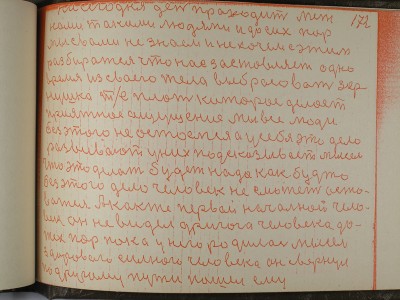 172
На сегодня дел проходит меж
нами такими людями и до сех пор
мы с вами не знаем и не хочем с этим
разбиратся что нас заставляет одно
время из своего тела выбрасоват зер-
нушко т/е плот каторое делает
приятное ощущение мы все люди
без этого не остоемся а у себя это дело
развивают у них подсказывает мысел
что это делат будет нада как будто
без этого дело человек не сможет оста-
ватся. А как же первай началной чело-
век он не видел другога человека до
тех пор пока у него родилас мысел
здаровога силного человека он свернул
по другому пути пошел ему